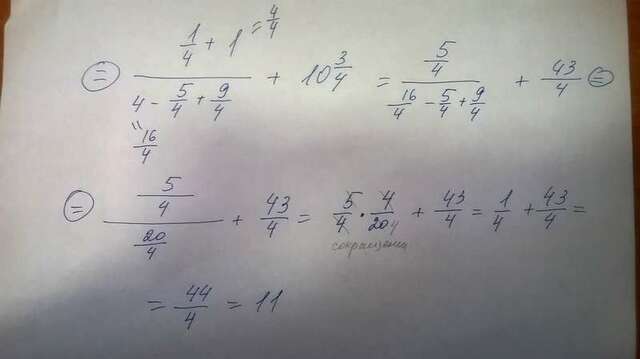 = (1/4 + 1 = 4/4) / (4 - 5/4 + 9/4) + 10 3/4 = (5/4) / (16/4 - 5/4 + 9/4) + 43/4 =
" 16/4
= (5/4) / (20/4) + 43/4 = 5/4 · 4/20 4 + 43/4 = 1/4 + 43/4 =
сокращения
= 44/4 = 11